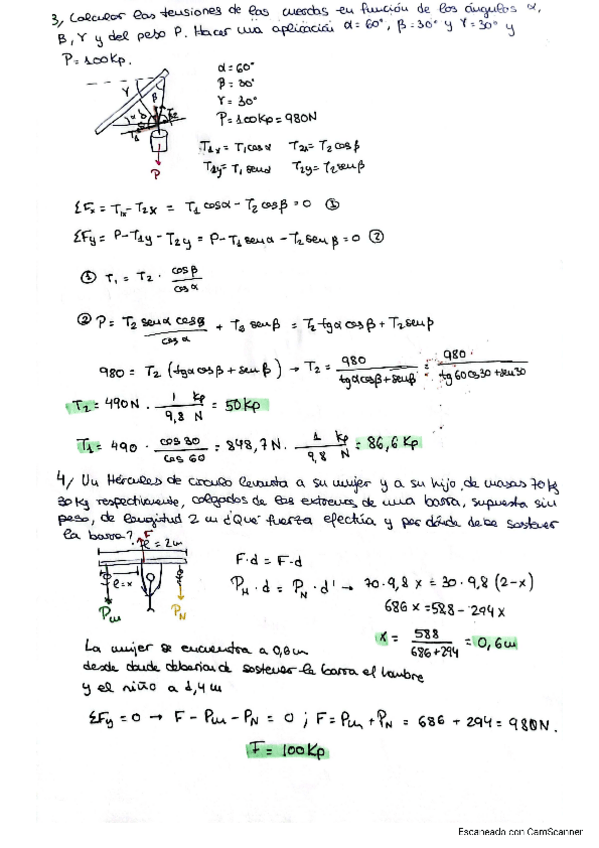 3, Calcular las tensiones de las cuerdas en función de los ángulos α,
β, γ y del peso P. Hacer una aplicación α = 60°, β = 30° y γ = 30° y
P = 100Kp.
γ β
α
T2
T1
P
α = 60°
β = 30°
γ = 30°
P = 100Kp = 980N
T1x = T1 cosα T2x = T2 cosβ
T1y = T1 senα T2y = T2 senβ
ΣFx = T1x - T2x = T1 cosα - T2 cosβ = 0 ①
ΣFy = P - T1y - T2y = P - T1 senα - T2 senβ = 0 ②
① T1 = T2 · cosβ / cosα
② P = T2 senα cosβ / cosα + T2 senβ = T2 tgα cosβ + T2 senβ
980 = T2 (tgα cosβ + senβ) → T2 = 980 / tgα cosβ + senβ = 980 / tg 60 cos 30 + sen 30
T2 = 490N · 1 Kp / 9,8 N = 50 Kp
T1 = 490 · cos 30 / cos 60 = 848,7 N · 1 Kp / 9,8 N = 86,6 Kp
4/ Un Hércules de circulo levanta a su mujer y a su hijo, de masas 70 kg
30 Kg respectivamente, colgados de los extremos de una barra, supuesta sin
peso, de longitud 2 m ¿Qué fuerza efectúa y por dónde debe sostener
la barra?
F
l = 2m
l = x
Pm
PN
F · d = F · d
PM · d = PN · d' → 70 · 9,8 x = 30 · 9,8 (2 - x)
686 x = 588 - 294 x
x = 588 / 686 + 294 = 0,6 m
La mujer se encuentra a 0,6 m
desde donde debería de sostener la barra el hombre
y el niño a 1,4 m
ΣFy = 0 → F - Pm - PN = 0 ; F = Pm + PN = 686 + 294 = 980N.
F = 100 Kp
Escaneado con CamScanner